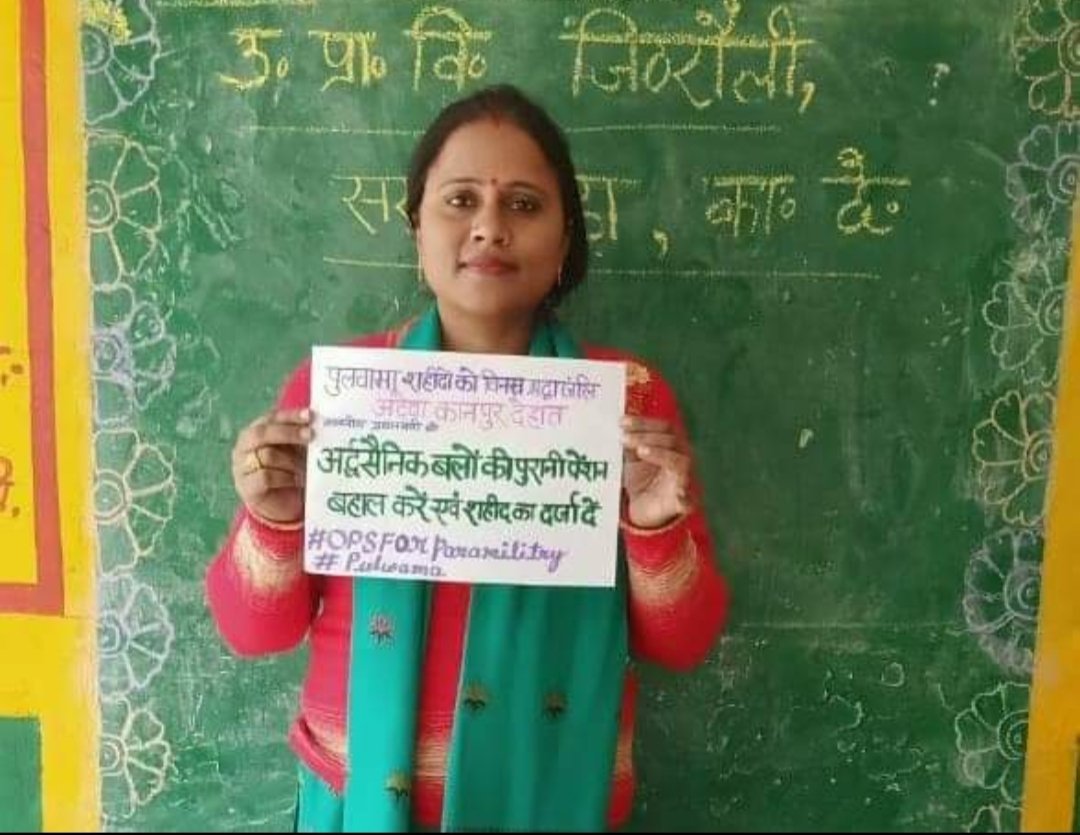 उ० प्रा० वि० जिoरौली,
सर , का० दे०
पुलवामा शहीदों को विनम्र श्रद्धांजलि
अटेवा कानपुर देहात
माननीय प्रधानमंत्री जी
अर्द्वसैनिक बलों की पुरानी पेंशन
बहाल करें एवं शहीद का दर्जा दें
#OPSFOR Paramilitry
# Pulwama